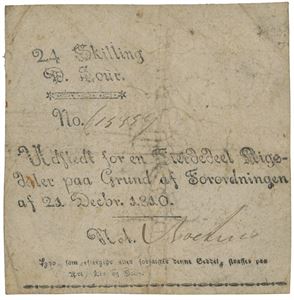 24 Skilling
D. Cour.
No.
Udstedt for en Fierdedeel Rigs-
daler paa Grund af Forordningen
af 21 Decbr. 1810.
Not.
som eftergiør eller forfalsker denne Seddel, straffes paa
Ære, Liv og Gods.